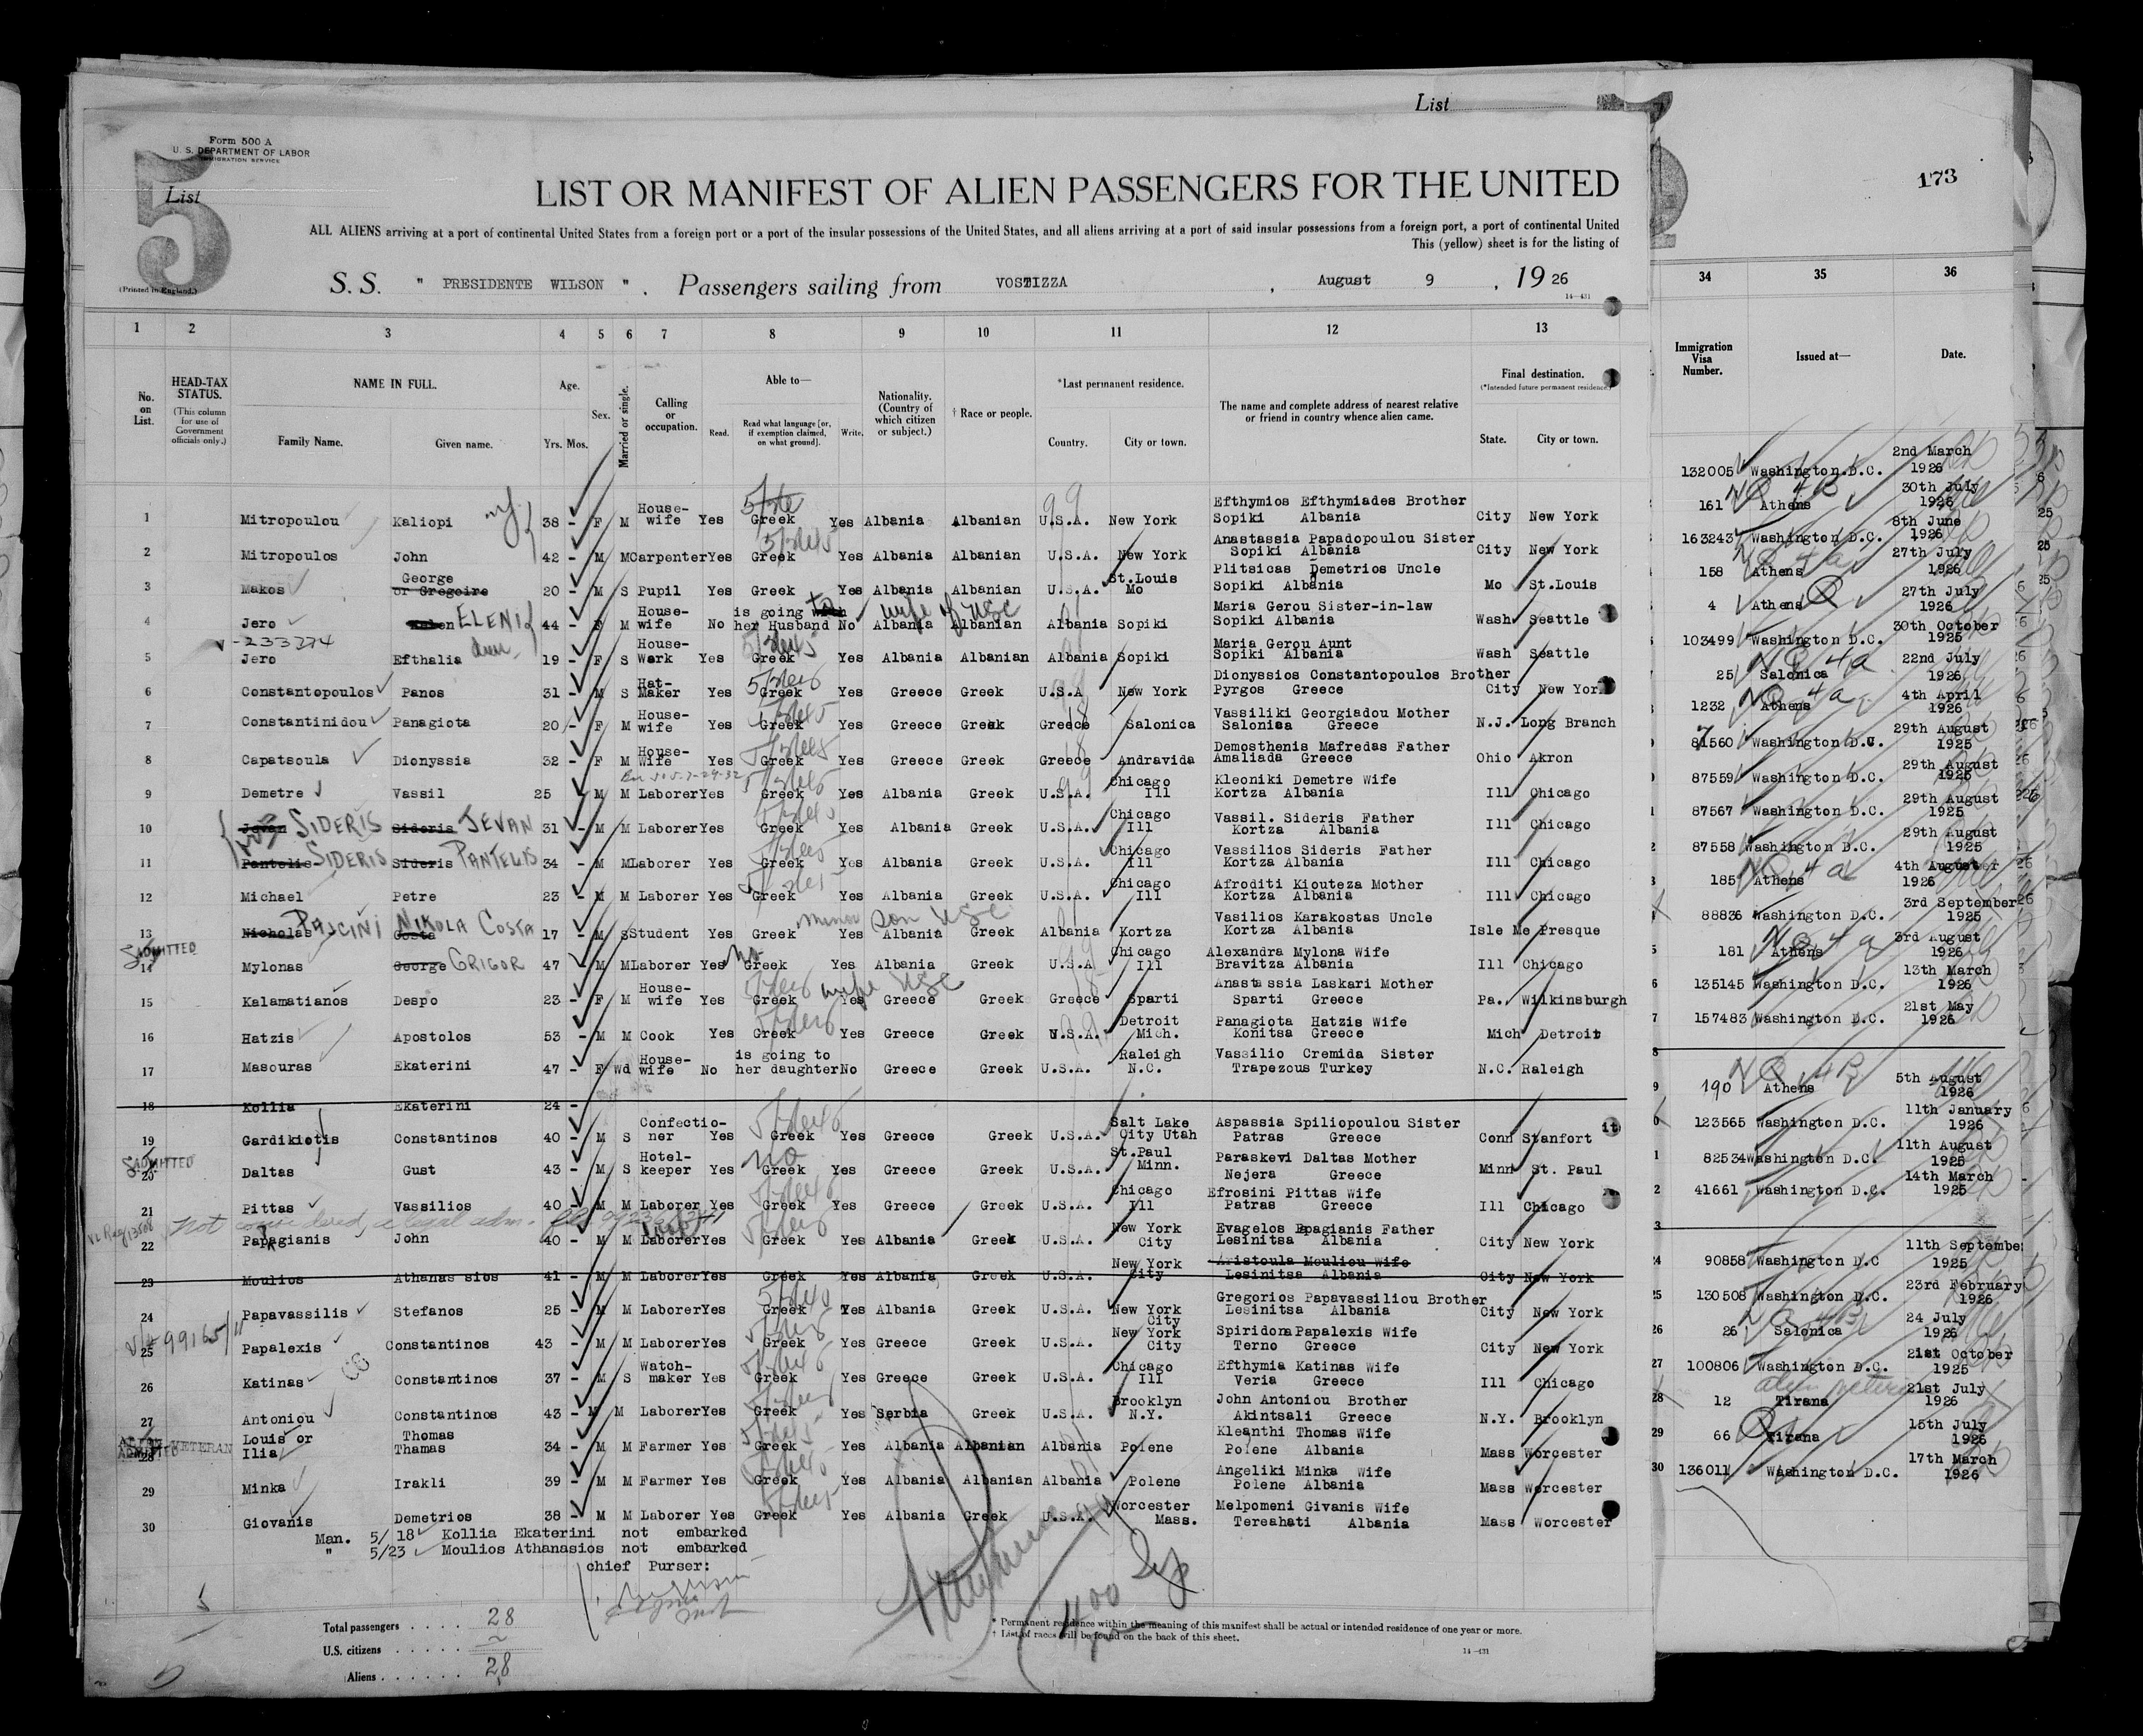 List
Form 500 A
U. S. DEPARTMENT OF LABOR
IMMIGRATION SERVICE
5
List
173
LIST OR MANIFEST OF ALIEN PASSENGERS FOR THE UNITED
ALL ALIENS arriving at a port of continental United States from a foreign port or a port of the insular possessions of the United States, and all aliens arriving at a port of said insular possessions from a foreign port, a port of continental United
This (yellow) sheet is for the listing of
(Printed in England.)
S. S. " PRESIDENTE WILSON " . Passengers sailing from VOSTIZZA , August 9 , 19 26
14—431
1 2 3 4 5 6 7 8 9 10 11 12 13 34 35 36
No. on List.
HEAD-TAX STATUS.
(This column for use of Government officials only.)
NAME IN FULL.
Family Name. Given name.
Age.
Yrs. Mos.
Sex.
Married or single.
Calling or occupation.
Able to—
Read. Read what language [or, if exemption claimed, on what ground]. Write.
Nationality. (Country of which citizen or subject.)
† Race or people.
*Last permanent residence.
Country. City or town.
The name and complete address of nearest relative or friend in country whence alien came.
Final destination.
(*Intended future permanent residence.)
State. City or town.
Immigration Visa Number.
Issued at—
Date.
1 Mitropoulou Kaliopi 38 - F M House-wife Yes Greek Yes Albania Albanian U.S.A. New York Efthymios Efthymiades Brother Sopiki Albania City New York
2 Mitropoulos John 42 - M M Carpenter Yes Greek Yes Albania Albanian U.S.A. New York Anastassia Papadopoulou Sister Sopiki Albania City New York
3 Makos George or Gregoire 20 - M S Pupil Yes Greek Yes Albania Albanian U.S.A. St.Louis Mo Plitsicas Demetrios Uncle Sopiki Albania Mo St.Louis
4 Jero ELENI 44 - F M House-wife No is going to her Husband No wife of USC Albania Albanian Albania Sopiki Maria Gerou Sister-in-law Sopiki Albania Wash Seattle
V-233274
5 Jero Efthalia 19 - F S House-Work Yes Greek Yes Albania Albanian Albania Sopiki Maria Gerou Aunt Sopiki Albania Wash Seattle
6 Constantopoulos Panos 31 - M S Hat-Maker Yes Greek Yes Greece Greek U.S.A New York Dionyssios Constantopoulos Brother Pyrgos Greece City New York
7 Constantinidou Panagiota 20 - F M House-wife Yes Greek Yes Greece Greek Greece Salonica Vassiliki Georgiadou Mother Salonica Greece N.J. Long Branch
8 Capatsoula Dionyssia 32 - F M House-Wife Yes Greek Yes Greece Greek Greece Andravida Demosthenis Mafredas Father Amaliada Greece Ohio Akron
9 Demetre Vassil 25 M M Laborer Yes Greek Yes Albania Greek U.S.A. Chicago Ill Kleoniki Demetre Wife Kortza Albania Ill Chicago
10 Jevan SIDERIS Sideris JEVAN 31 - M M Laborer Yes Greek Yes Albania Greek U.S.A. Chicago Ill Vassil. Sideris Father Kortza Albania Ill Chicago
11 Pantelis SIDERIS Sideris PANTELIS 34 - M M Laborer Yes Greek Yes Albania Greek U.S.A. Chicago Ill Vassilios Sideris Father Kortza Albania Ill Chicago
12 Michael Petre 23 - M M Laborer Yes Greek Yes Albania Greek U.S.A. Chicago Ill Afroditi Kiouteza Mother Kortza Albania Ill Chicago
13 Nicholas PASCINI Costa NIKOLA COSTA 17 - M S Student Yes Greek Yes minor son USC Albania Greek Albania Kortza Vasilios Karakostas Uncle Kortza Albania Isle Me Presque
ADMITTED
14 Mylonas George GRIGOR 47 M M Laborer Yes No Greek Yes Albania Greek U.S.A Chicago Ill Alexandra Mylona Wife Bravitza Albania Ill Chicago
15 Kalamatianos Despo 23 - F M House-wife Yes Greek Yes wife USC Greece Greek Greece Sparti Anastassia Laskari Mother Sparti Greece Pa. Wilkinsburgh
16 Hatzis Apostolos 53 - M M Cook Yes Greek Yes Greece Greek U.S.A. Detroit Mich. Panagiota Hatzis Wife Konitsa Greece Mich Detroit
17 Masouras Ekaterini 47 - F Wd House-wife No is going to her daughter No Greece Greek U.S.A. Raleigh N.C. Vassilio Cremida Sister Trapezous Turkey N.C. Raleigh
18 Kollia Ekaterini 24 -
19 Gardikiotis Constantinos 40 - M S Confectio-ner Yes Greek Yes Greece Greek U.S.A. Salt Lake City Utah Aspassia Spiliopoulou Sister Patras Greece Conn Stanfort
ADMITTED
20 Daltas Gust 43 - M S Hotel-keeper Yes no Greek Yes Greece Greek U.S.A. St.Paul Minn. Paraskevi Daltas Mother Nejera Greece Minn St. Paul
21 Pittas Vassilios 40 - M M Laborer Yes Greek Yes Greece Greek U.S.A. Chicago Ill Efrosini Pittas Wife Patras Greece Ill Chicago
22 Papagianis John 40 - M M Laborer Yes Greek Yes Albania Greek U.S.A. New York City Evagelos Bpagianis Father Lesinitsa Albania City New York
23 Moulios Athanassios 41 - M M Laborer Yes Greek Yes Albania Greek U.S.A. New York City Aristoula Mouliou Wife Lesinitsa Albania City New York
24 Papavassilis Stefanos 25 - M M Laborer Yes Greek Yes Albania Greek U.S.A. New York City Gregorios Papavassiliou Brother Lesinitsa Albania City New York
25 Papalexis Constantinos 43 - M M Laborer Yes Greek Yes Greece Greek U.S.A. New York City Spiridona Papalexis Wife Terno Greece City New York
26 Katinas Constantinos 37 - M S Watch-maker Yes Greek Yes Greece Greek U.S.A. Chicago Ill Efthymia Katinas Wife Veria Greece Ill Chicago
27 Antoniou Constantinos 43 - M M Laborer Yes Greek Yes Serbia Greek U.S.A. Brooklyn N.Y. John Antoniou Brother Akintsali Greece N.Y. Brooklyn
ADMITTED VETERAN
28 Louis or Ilia Thomas Thamas 34 - M M Farmer Yes Greek Yes Albania Albanian Albania Polene Kleanthi Thomas Wife Polene Albania Mass Worcester
29 Minka Irakli 39 - M M Farmer Yes Greek Yes Albania Albanian Albania Polene Angeliki Minka Wife Polene Albania Mass Worcester
30 Giovanis Demetrios 38 - M M Laborer Yes Greek Yes Albania Greek U.S.A. Worcester Mass. Melpomeni Givanis Wife Tereahati Albania Mass Worcester
Man. 5/ 18 Kollia Ekaterini not embarked
" 5/23 Moulios Athanasios not embarked
chief Purser:
Total passengers . . . . 28
U.S. citizens . . . . .
Aliens . . . . . . 28
* Permanent residence within the meaning of this manifest shall be actual or intended residence of one year or more.
† List of races will be found on the back of this sheet.
14—431
132005 Washington.D.C. 2nd March 1926
161 Athens 30th July 1926
163243 Washington D.C. 8th June 1926
158 Athens 27th July 1926
4 Athens 27th July 1926
103499 Washington D.C. 30th October 1925
25 Salonica 22nd July 1926
1232 Athens 4th April 1926
81560 Washington D.C. 29th August 1925
87559 Washington D.C. 29th August 1925
87567 Washington D.C. 29th August 1925
87558 Washington D.C. 29th August 1925
185 Athens 4th August 1926
88836 Washington D.C. 3rd September 1925
181 Athens 3rd August 1926
135145 Washington D.C. 13th March 1926
157483 Washington D.C. 21st May 1926
190 Athens 5th August 1926
123565 Washington D.C. 11th January 1926
82534 Washington D.C. 11th August 1925
41661 Washington D.C. 14th March 1925
90858 Washington D.C 11th Septembe 1925
130508 Washington D.C. 23rd February 1926
26 Salonica 24 July 1926
100806 Washington D.C. 21st October 1925
12 Tirana 21st July 1926
66 Tirana 15th July 1926
136011 Washington D.C. 17th March 1926